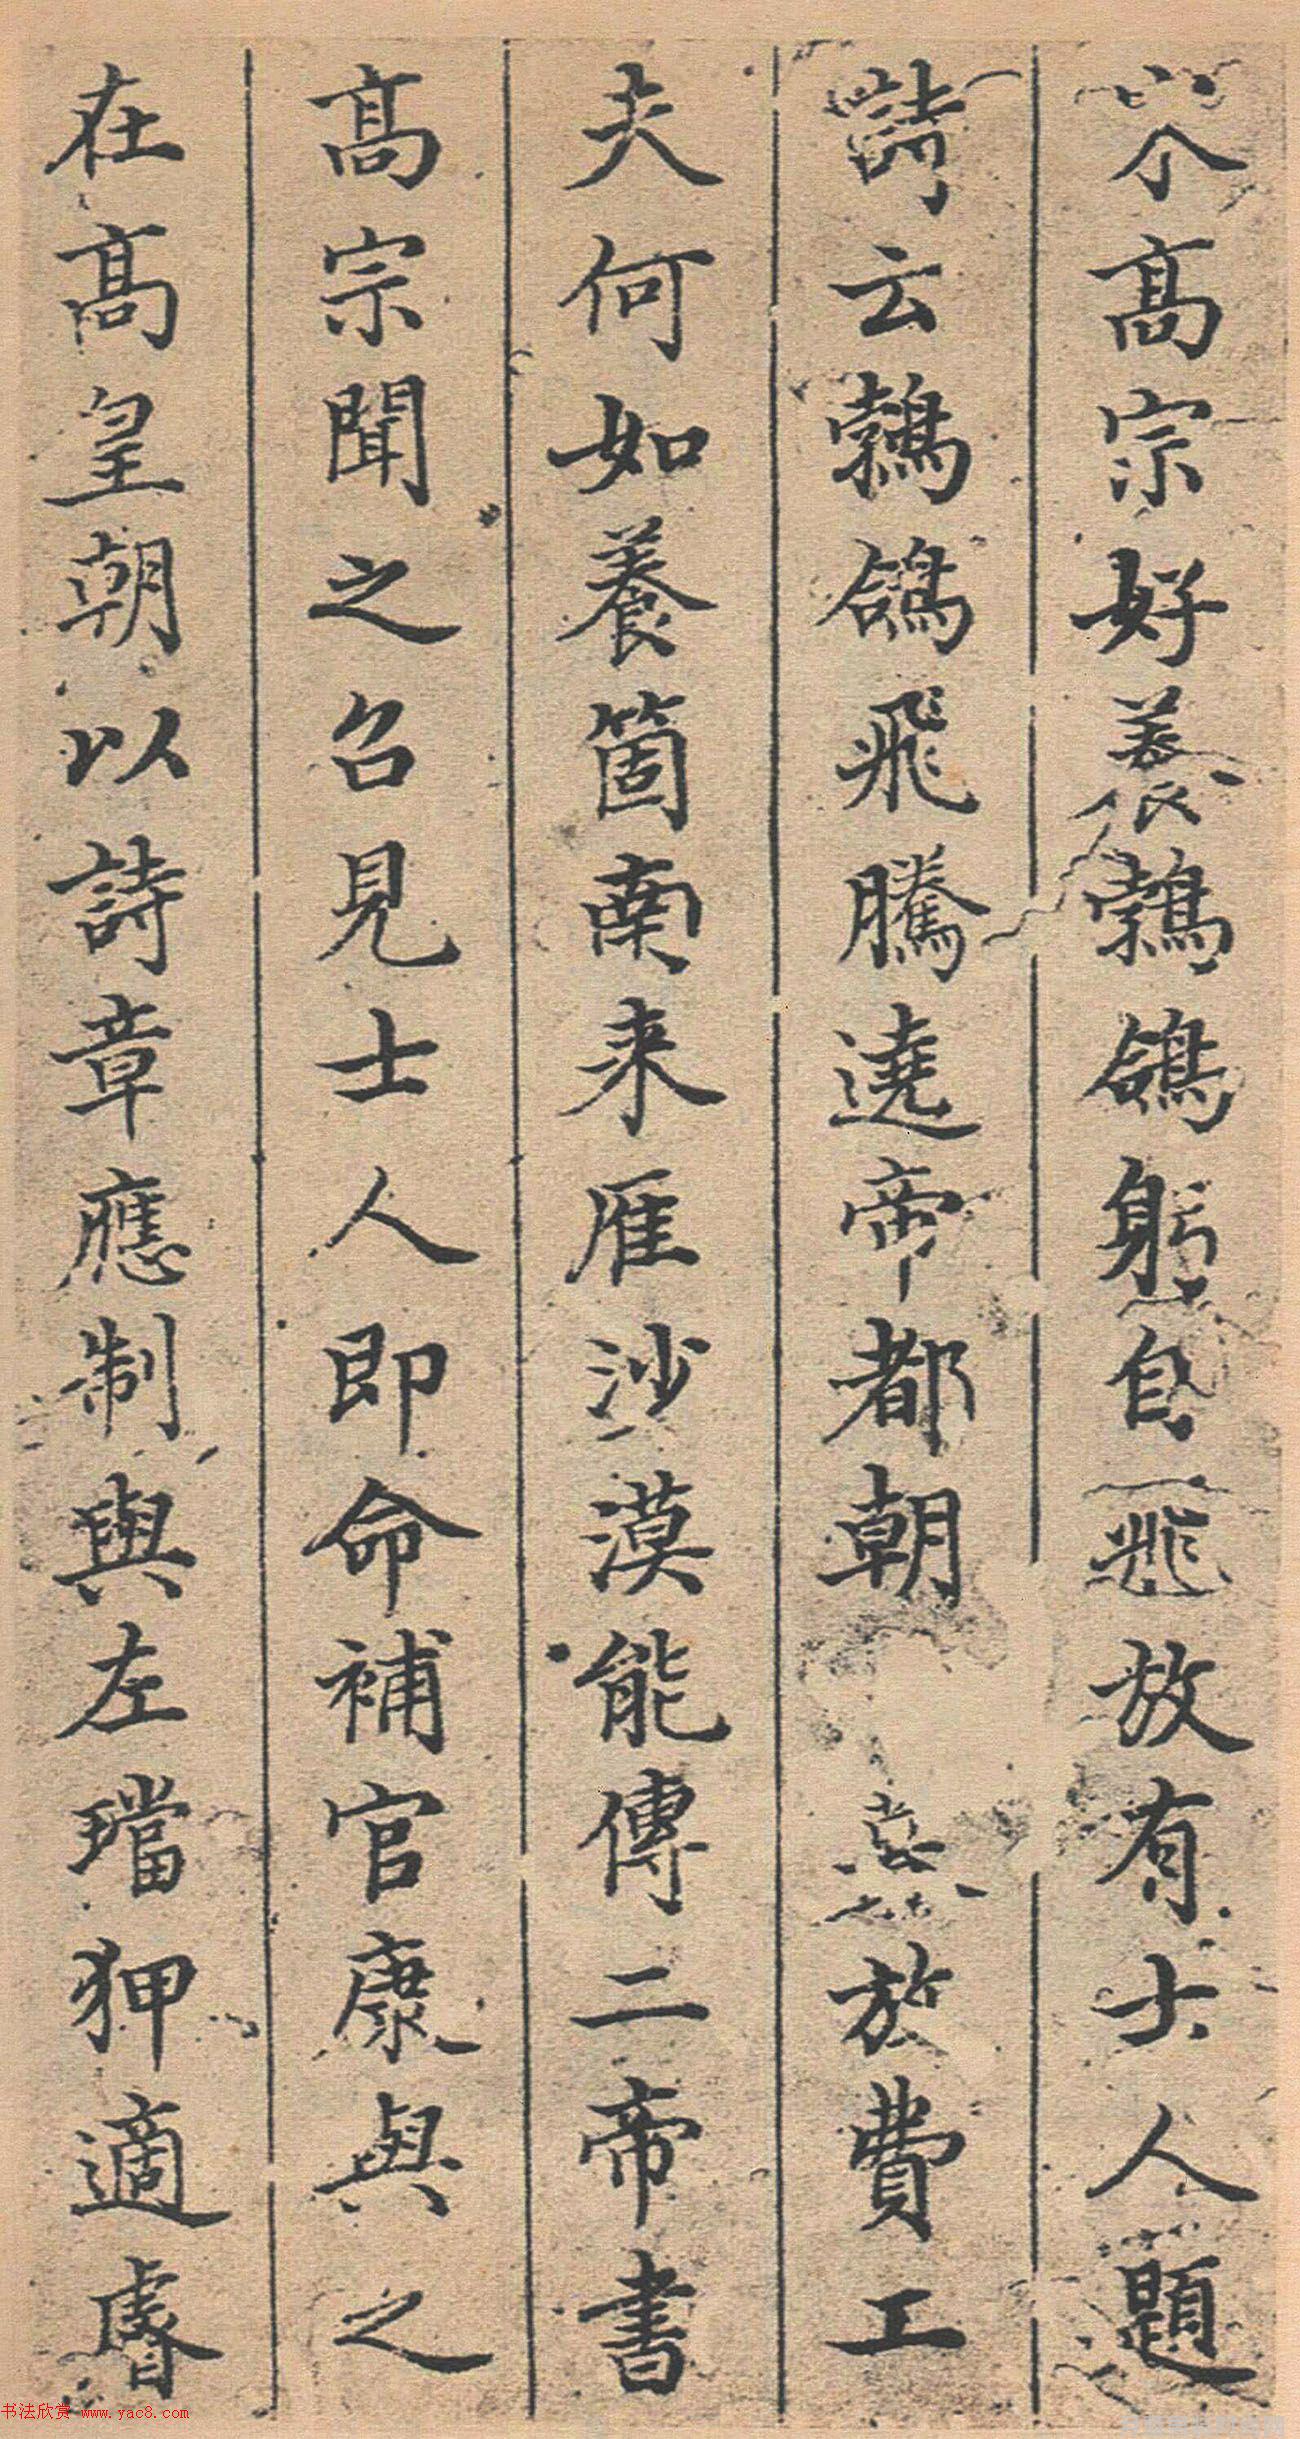 宋髙宗好養鵓鴿躬自飛放有士人題
詩云鵓鴿飛騰遶帝都朝暮放費工
夫何如養箇南来雁沙漠能傳二帝書
髙宗聞之召見士人即命補官康與之
在髙皇朝以詩章應制與左璫狎適睿
书法欣赏 www.yac8.com